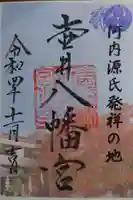 河内源氏発祥の地
壷井八幡宮
令和四年十二月十一日